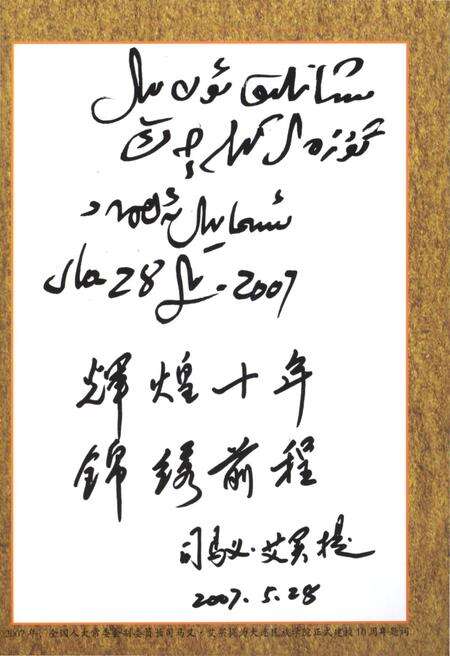 شانلىق ئون يىل
گۈزەل كېلەچەك
ئىسمايىل ئەھمەد
2007 - يىل 28 - ماي
輝煌十年
錦绣前程
司马义·艾买提
2007.5.28
2007年,全国人大常委会副委员长司马义·艾买提为大连民族学院正式建校10周年题词